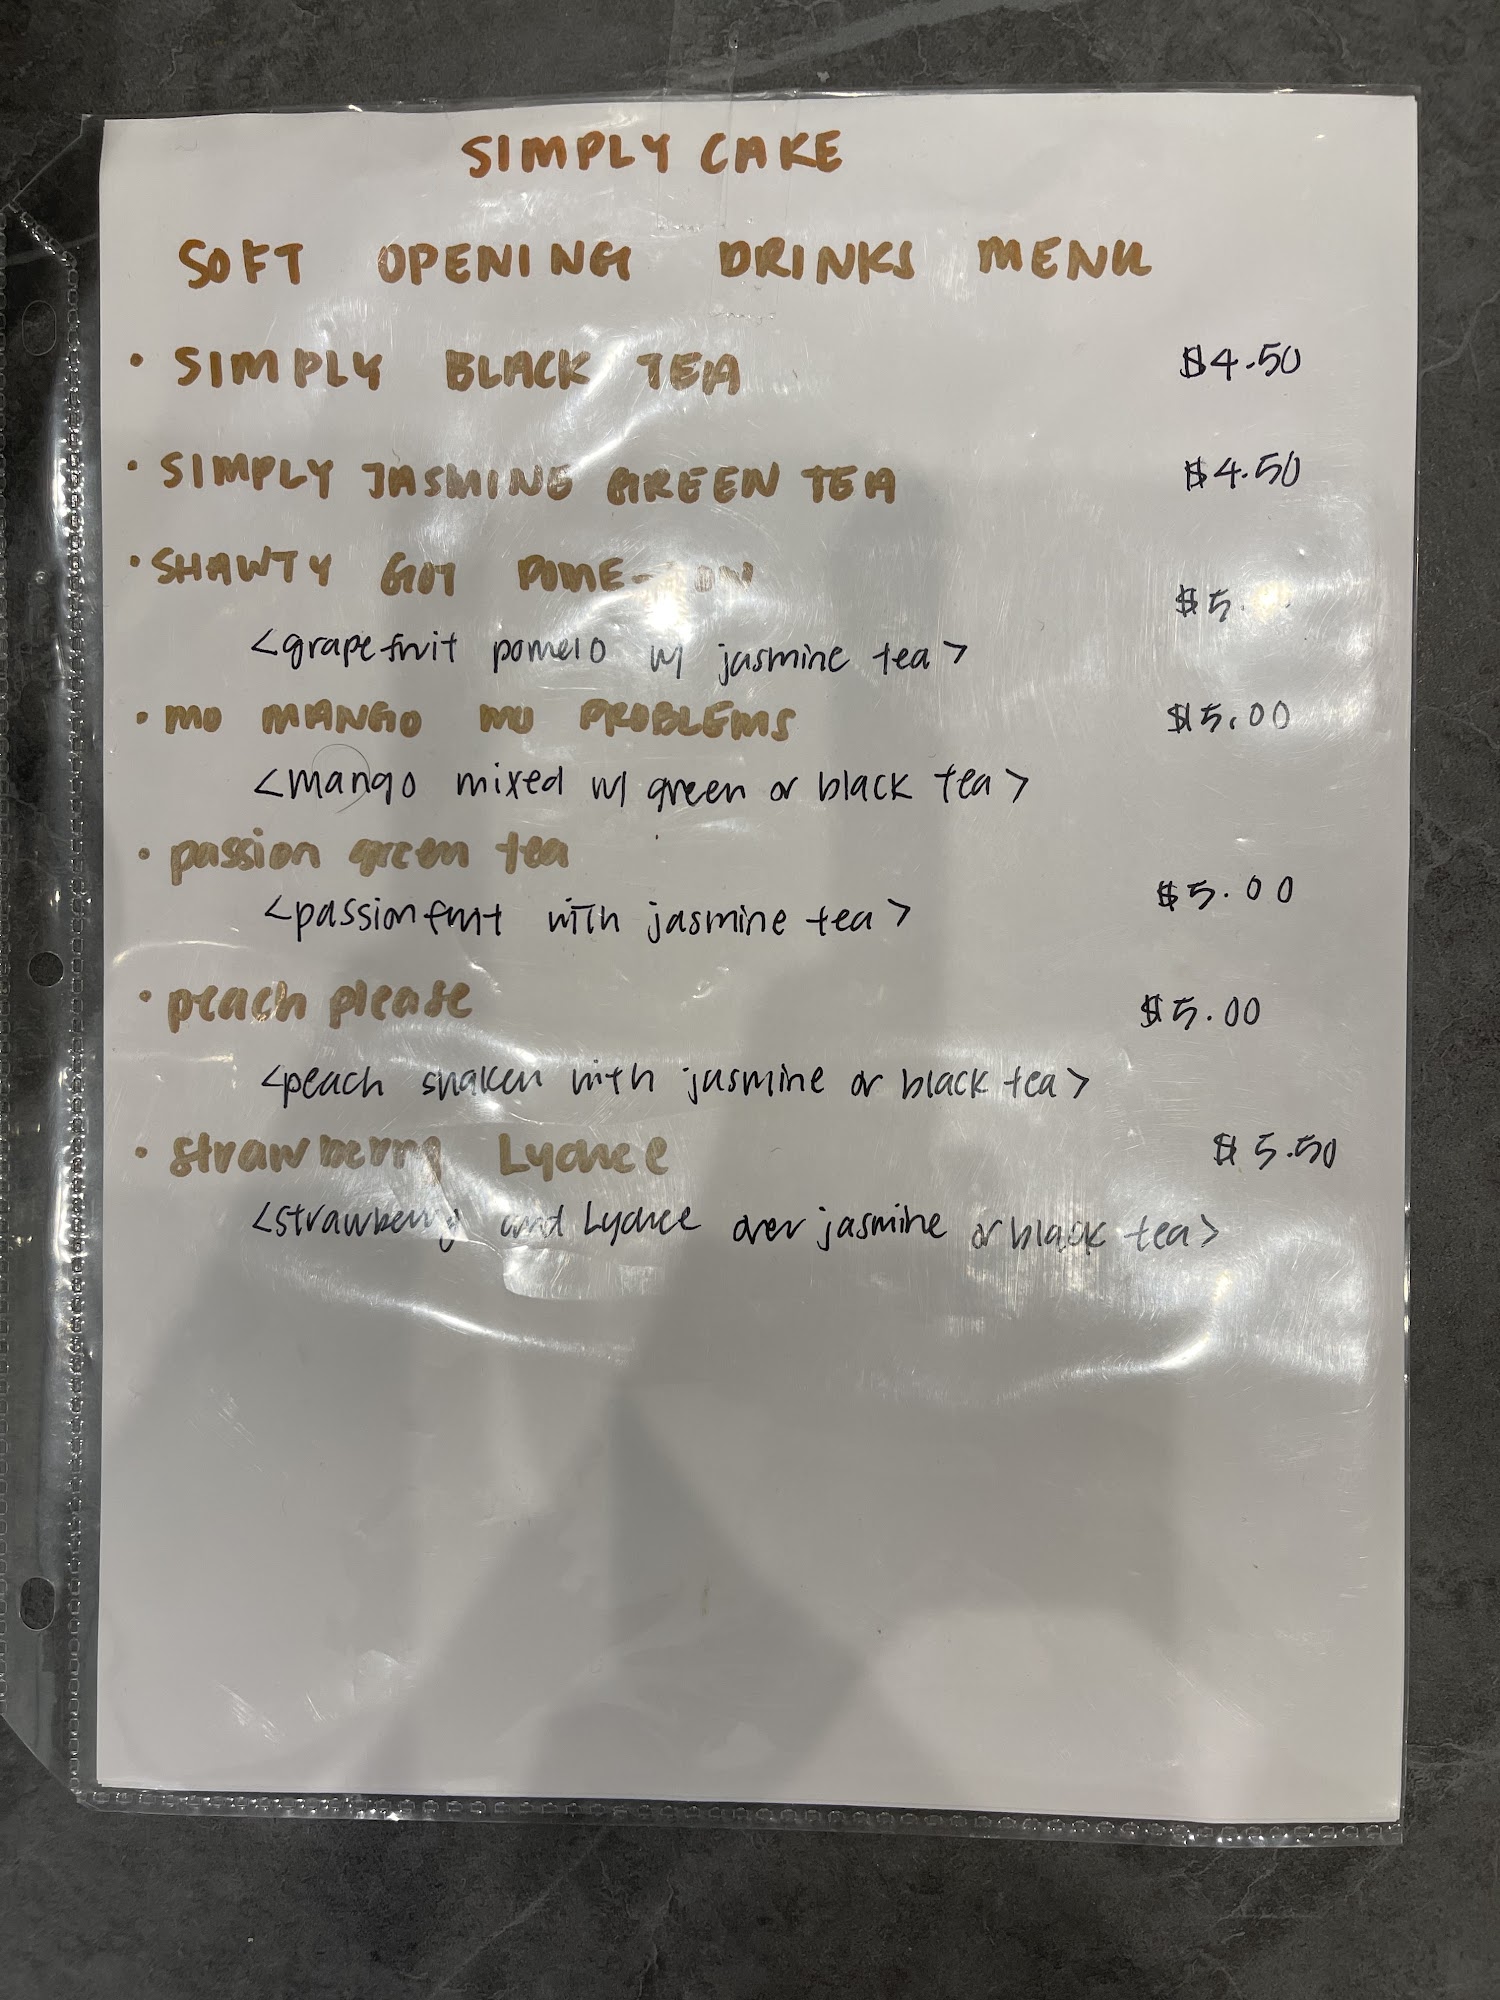 SIMPLY CAKE
SOFT OPENING DRINKS MENU
• SIMPLY BLACK TEA $4.50
• SIMPLY JASMINE GREEN TEA $4.50
• SHAWTY GOT $5.
<grapefruit pomelo w/ jasmine tea>
• MO MANGO MO PROBLEMS $5.00
<mango mixed w/ green or black tea>
• passion green tea
<passionfruit with jasmine tea> $5.00
• peach please $5.00
<peach shaken with jasmine or black tea>
• strawberry Lychee $5.50
<strawberry and Lychee over jasmine or black tea>